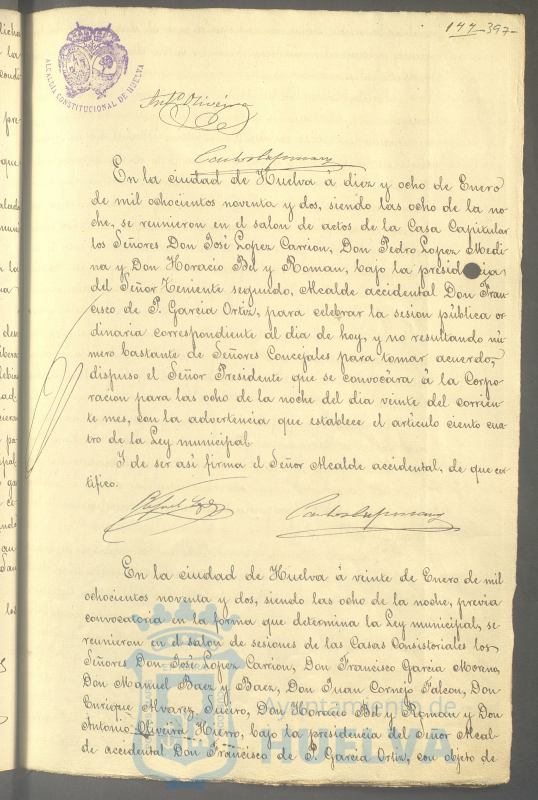 144-397-
ALCALDIA CONSTITUCIONAL DE HUELVA
Antº Oliveira
En la ciudad de Huelva á diez y ocho de Enero
de mil ochocientos noventa y dos, siendo las ocho de la no-
che, se reunieron en el salon de actos de la Casa Capitular
los Señores Don José Lopez Carrion, Don Pedro Lopez Medi-
na y Don Horacio Bel y Roman, bajo la presidencia
del Señor Teniente segundo, Alcalde accidental Don Fran-
cisco de P. Garcia Ortiz, para celebrar la sesion pública or-
dinaria correspondiente al dia de hoy, y no resultando nú-
mero bastante de Señores Concejales para tomar acuerdo,
dispuso el Señor Presidente que se convocára á la Corpo-
racion para las ocho de la noche del dia veinte del corrien-
te mes, con la advertencia que establece el artículo ciento cua-
tro de la Ley municipal.
Y de ser así firma el Señor Alcalde accidental, de que cer-
tifico.
En la ciudad de Huelva á veinte de Enero de mil
ochocientos noventa y dos, siendo las ocho de la noche, prévia
convocatoria en la forma que determina la Ley municipal, se
reunieron en el salon de sesiones de las Casas Consistoriales los
Señores Don José Lopez Carrion, Don Francisco Garcia Moreno,
Don Manuel Baez y Baez, Don Juan Cornejo Falcon, Don
Enrique Alvarez Suero, Don Horacio Bel y Roman y Don
Antonio Oliveira Hierro, bajo la presidencia del Señor Alcal-
de accidental Don Francisco de P. Garcia Ortiz, con objeto de
Ayuntamiento de
HUELVA